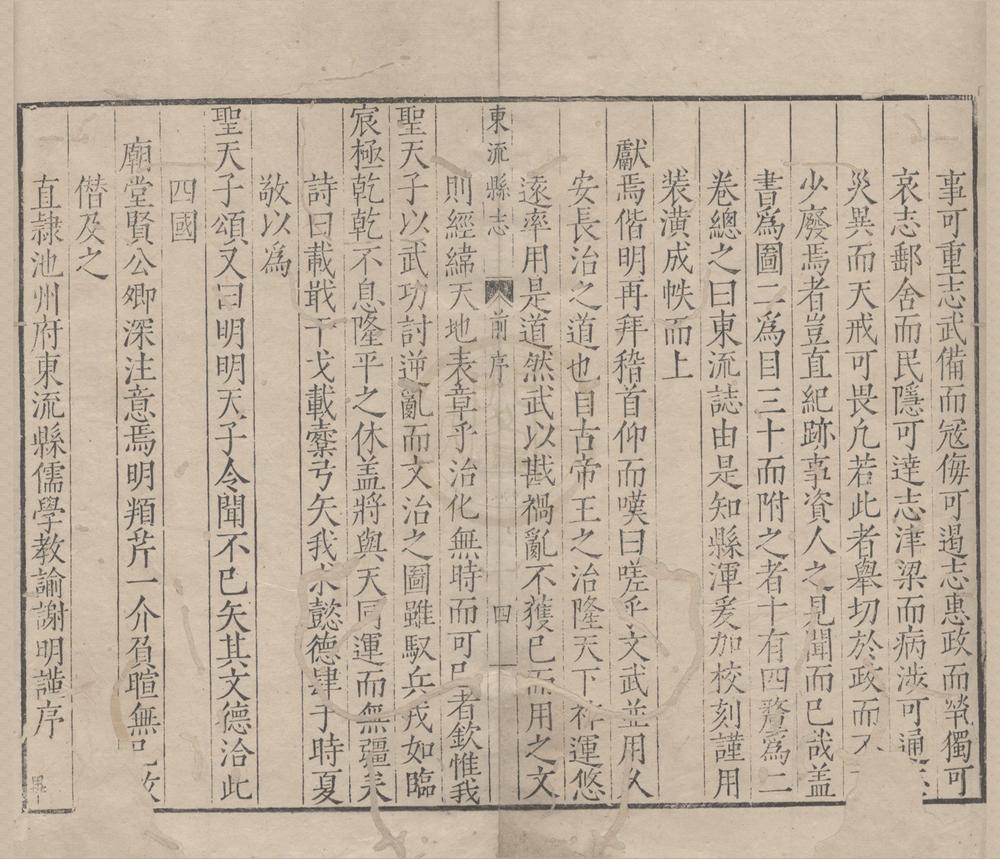 事可重志武備而寇侮可遏志惠政而煢獨可
哀志郵舍而民隱可達志津梁而病涉可通
災異而天戒可畏凢若此者舉切於政而
少廢焉者豈直紀跡事資人之見聞而已哉盖
書為圖二為目三十而附之者十有四釐為二
卷總之曰東流誌由是知縣渾爰加校刻謹用
裝潢成帙而上
獻焉偕明再拜稽首仰而嘆曰嗟乎文武並用乆
安長治之道也自古帝王之治隆天下祚運悠
遠率用是道然武以戡禍亂不獲已而用之文
東流縣志 前序 四
則經緯天地表章乎治化無時而可已者欽惟我
聖天子以武功討逆亂而文治之圖雖馭兵戎如臨
宸極乾乾不息隆平之休盖將與天同運而無疆矣
詩曰載戢干戈載櫜弓矢我求懿德肆于時夏
敬以為
聖天子頌又曰明明天子令聞不已矢其文德洽此
四國
廟堂賢公卿深注意焉明頖芹一介負暄無已
僭及之
直隷池州府東流縣儒學教諭謝明謹序